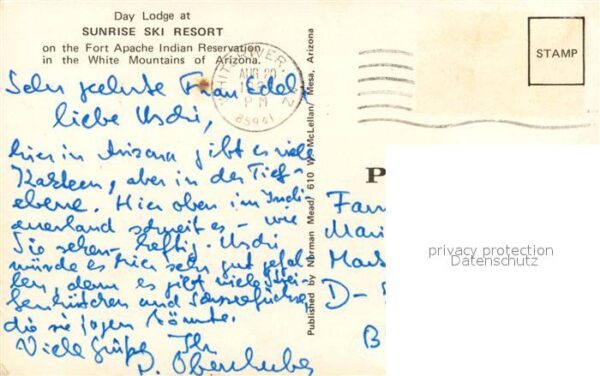 Day Lodge at
SUNRISE SKI RESORT
on the Fort Apache Indian Reservation
in the White Mountains of Arizona.
Sehr geehrte Frau Edel,
liebe Uschi,
hier in Arizona gibt es viele
Kakteen, aber in der Tief-
ebene. Hier oben im Indi-
anerland schneit es - wie
Sie sehen - heftig. Uschi
würde es hier sehr gut gefal-
len, denn es gibt viele
und
die sie jagen könnte.
Viele Grüße Ihr
WHITERIVER,
AUG 20
PM
85941
Published by Norman Mead/ 610 W. McLellan/ Mesa, Arizona
STAMP
P
Fam
Mari
D-
B
privacy protection
Datenschutz